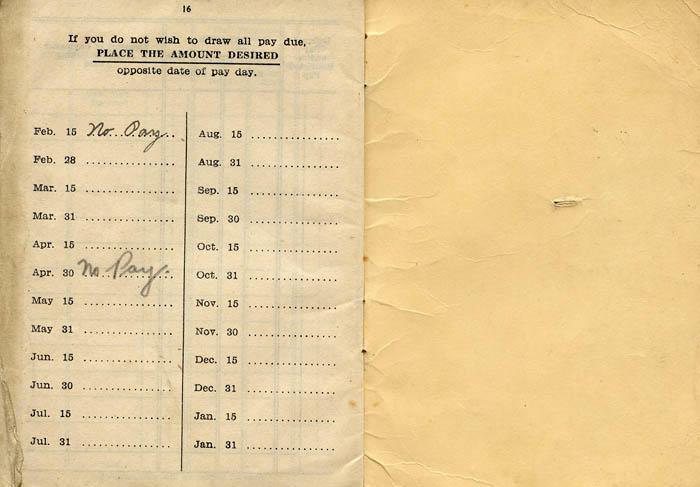 16
If you do not wish to draw all pay due,
PLACE THE AMOUNT DESIRED
opposite date of pay day.
Feb. 15 No Pay
Feb. 28
Mar. 15
Mar. 31
Apr. 15
Apr. 30 No Pay.
May 15
May 31
Jun. 15
Jun. 30
Jul. 15
Jul. 31
Aug. 15
Aug. 31
Sep. 15
Sep. 30
Oct. 15
Oct. 31
Nov. 15
Nov. 30
Dec. 15
Dec. 31
Jan. 15
Jan. 31